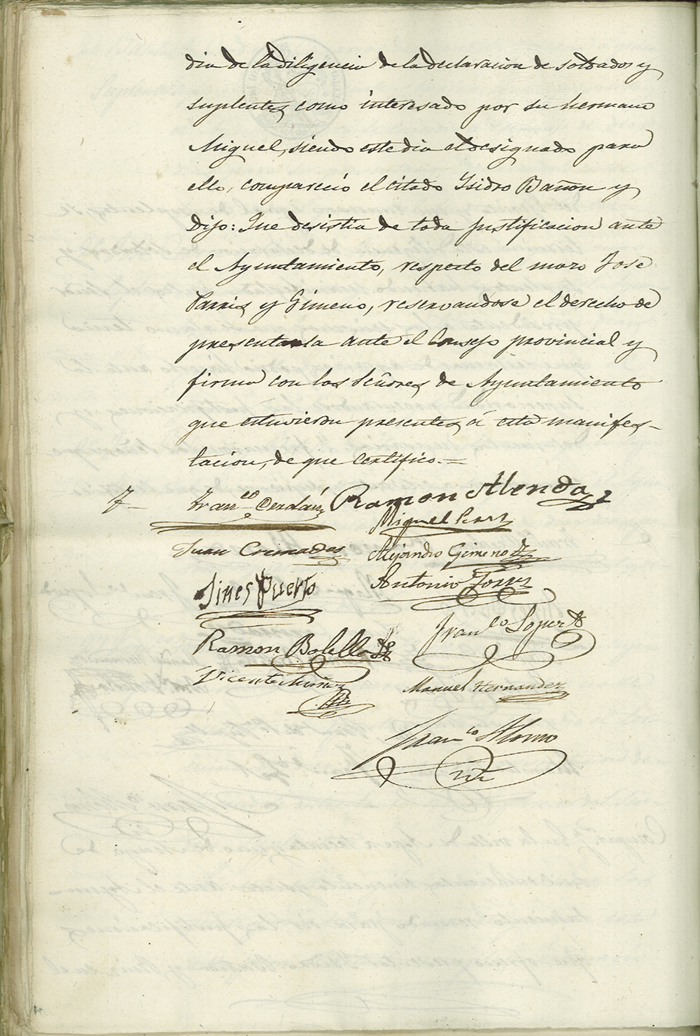 dia de la diligencia de la declaracion de soldados y
suplentes, como interesado por su hermano
Miguel, siendo este dia el designado para
ello, compareció el citado Isidro Bañon y
dijo: Que desistia de toda justificacion ante
el Ayuntamiento, respecto del mozo José
y Gimeno, reservandose el derecho de
presentarla ante el Consejo provincial y
firma con los Señores de Ayuntamiento
que estuvieron presentes á esta manifes-
tacion, de que certifico.=
Fran.co Cerdán Ramon Alenda
Miguel
Juan Cremades Alejandro Gimeno
Jines Puerto Antonio Torres
Ramon Bolella Fran.co Lopez
Vicente Manuel Hernandez
Fran.co Alorno